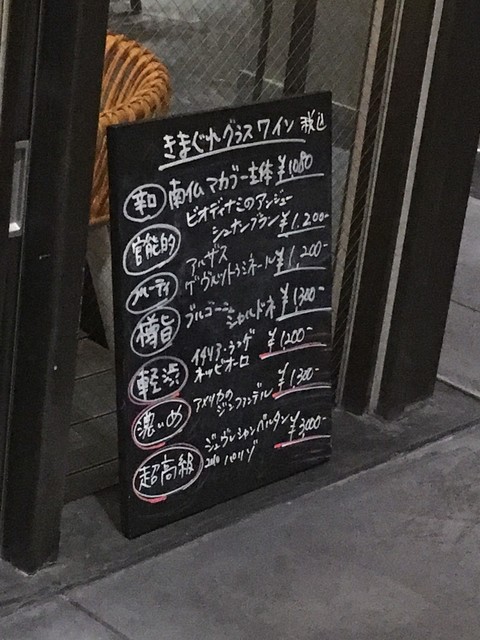 きまぐれグラスワイン 税込
辛口 南仏マカブー主体 ¥1080
官能的 ビオディナミのアンジュー
シュナンブラン ¥1,200-
フルーティ アルザス
ゲヴュルツトラミネール ¥1,200-
樽旨 ブルゴーニュ
シャルドネ ¥1,300-
軽渋 イタリアランゲ
ネッビオーロ ¥1200-
濃いめ アメリカの
ジンファンデル ¥1,300-
超高級 ジュヴレシャンベルタン
2010 パリゾ ¥3,000-